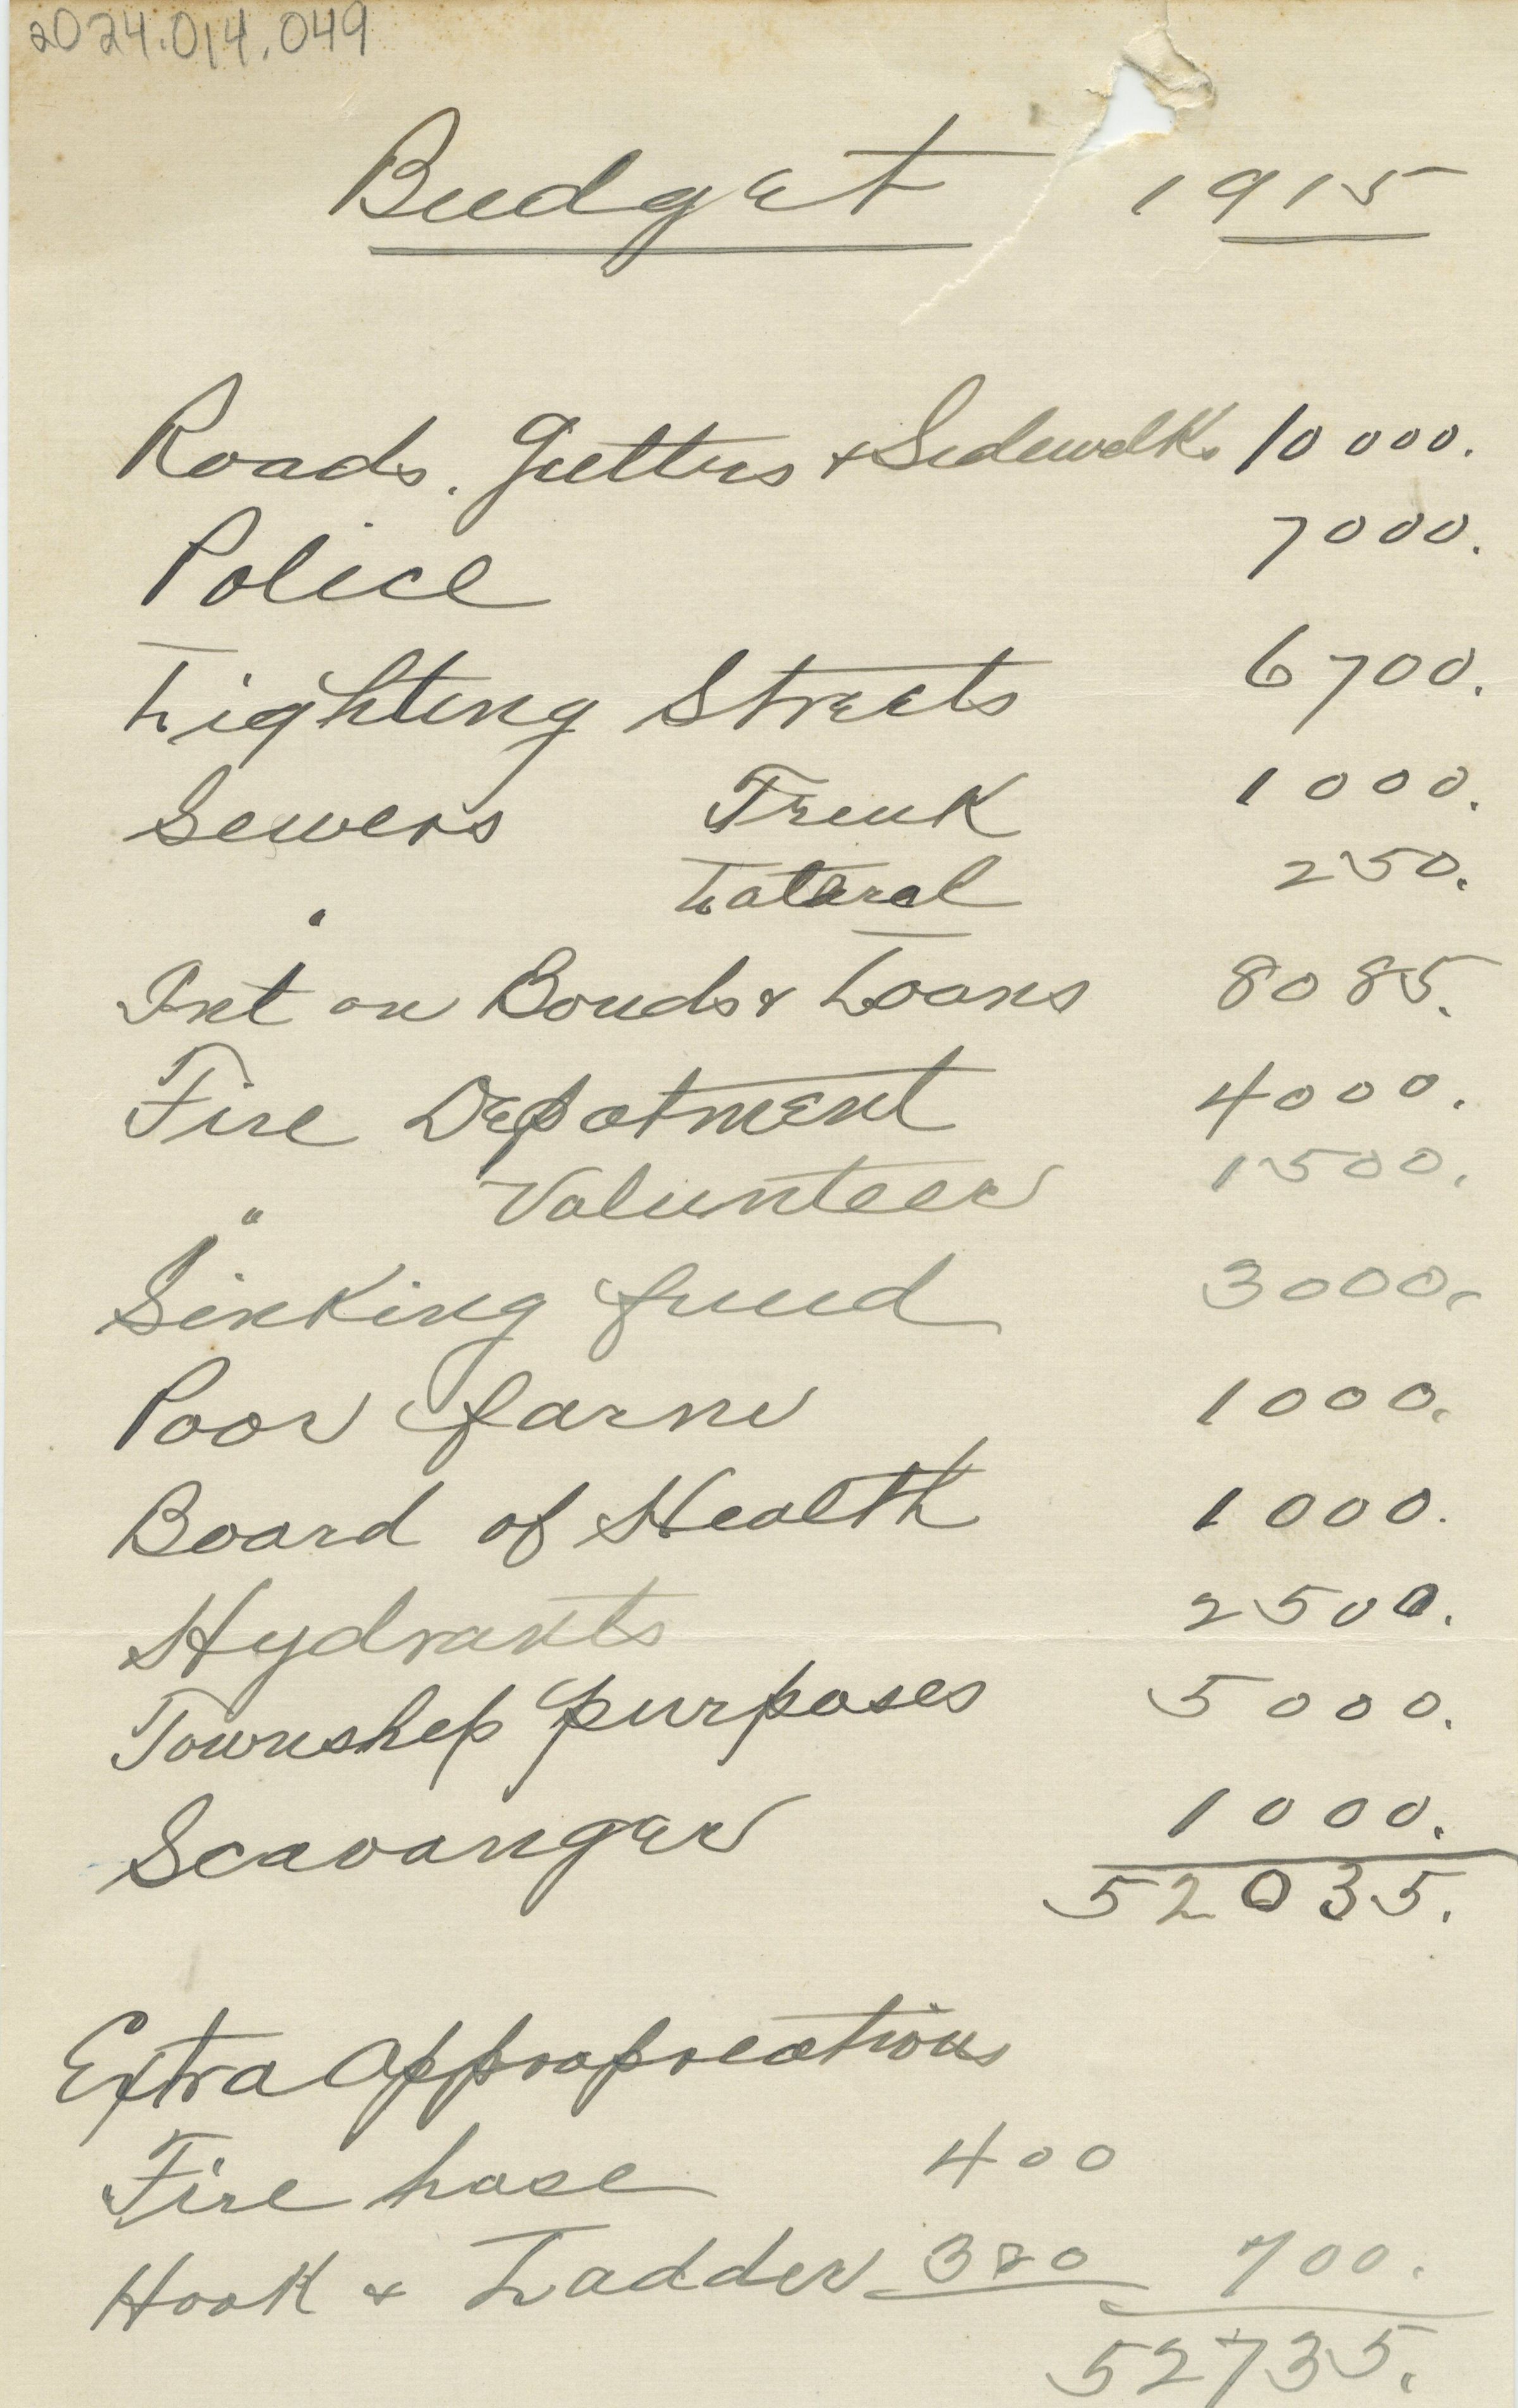 2024.014.049
Budget 1915
Roads. Gutters & Sidewalk. 10000.
Police 7000.
Lighting Streets 6700.
Sewers Trunk 1000.
" Lateral 250.
Int on Bonds & Loans 8085.
Fire Depatment 4000.
" Volunteer 1500.
Sinking fund 3000.
Poor farm 1000.
Board of Health 1000.
Hydrants 2500.
Township purposes 5000.
Scavanger 1000.
52035.
Extra Appropriations
Fire hose 400
Hook & Ladder 300 700.
52735.